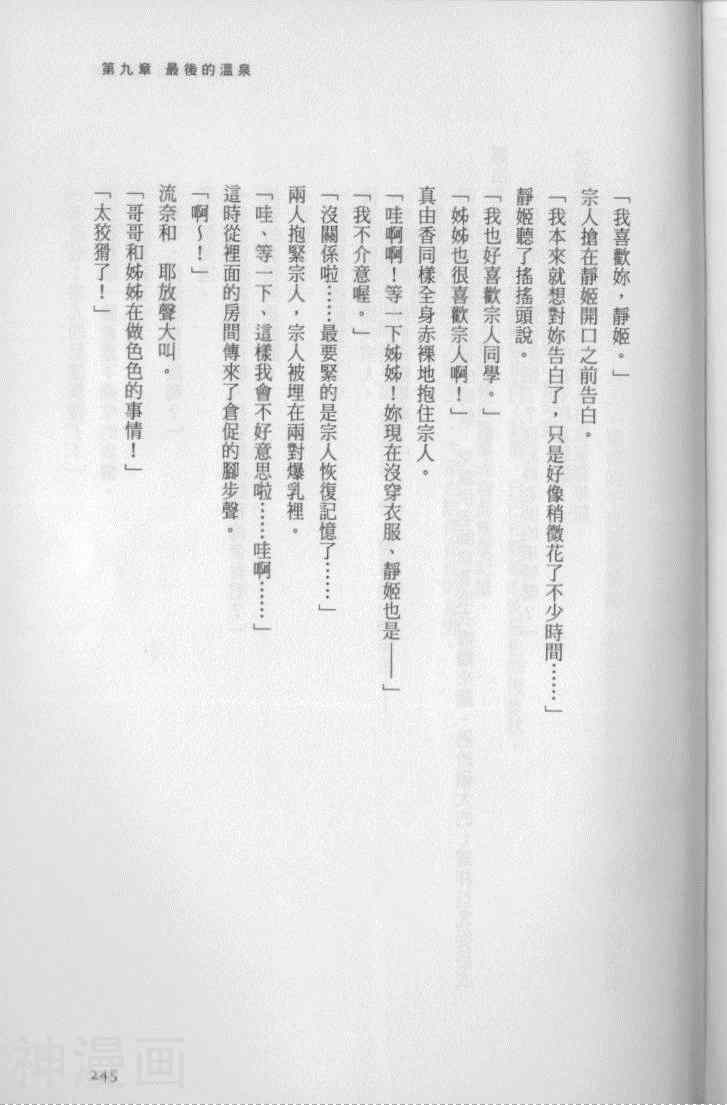 第九章 最後的溫泉
「我喜歡妳，靜姬。」
宗人搶在靜姬開口之前告白。
「我本來就想對妳告白了，只是好像稍微花了不少時間……」
靜姬聽了搖搖頭說。
「我也好喜歡宗人同學。」
「姊姊也很喜歡宗人啊！」
真由香同樣全身赤裸地抱住宗人。
「哇啊啊！等一下姊姊！妳現在沒穿衣服、靜姬也是——」
「我不介意喔。」
「沒關係啦……最要緊的是宗人恢復記憶了……」
兩人抱緊宗人，宗人被埋在兩對爆乳裡。
「哇、等一下、這樣我會不好意思啦……哇啊……」
這時從裡面的房間傳來了倉促的腳步聲。
「啊～！」
流奈和　耶放聲大叫。
「哥哥和姊姊在做色色的事情！」
「太狡猾了！」
245
神漫画